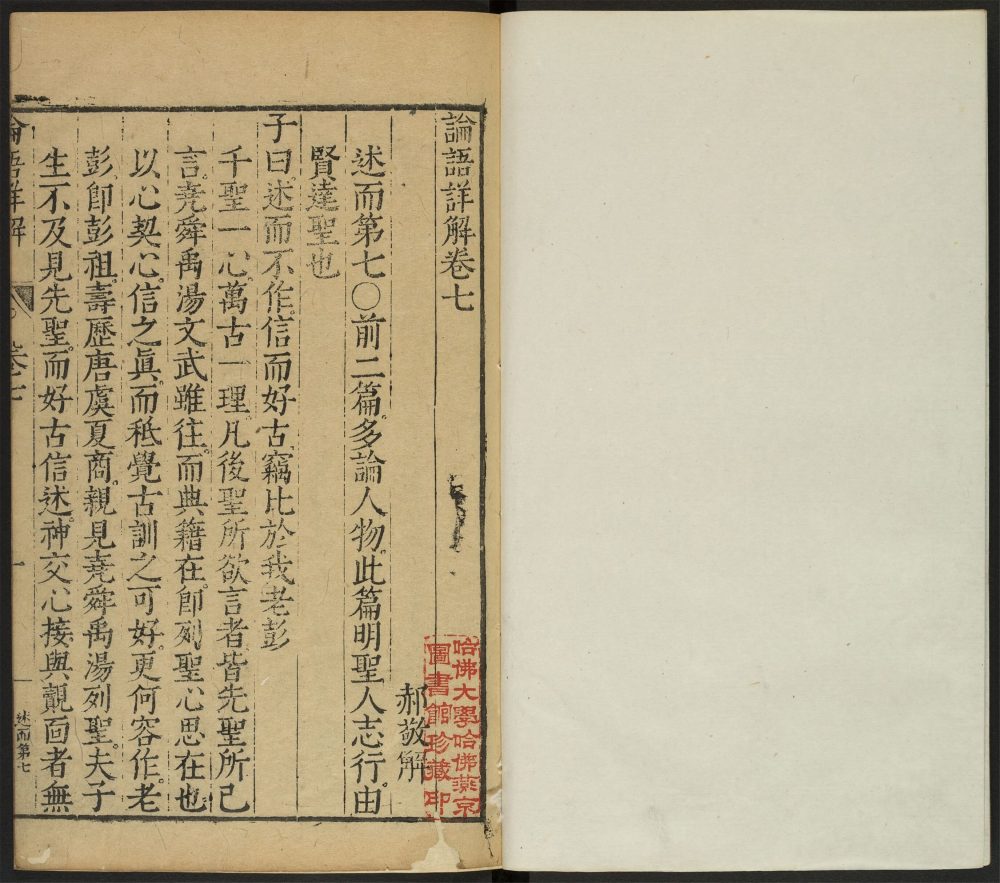 論語詳解卷七
郝敬解
述而第七〇前二篇多論人物此篇明聖人志行由
賢達聖也
子曰述而不作信而好古竊比於我老彭
千聖一心萬古一理凡後聖所欲言者皆先聖所已
言堯舜禹湯文武雖往而典籍在卽列聖心思在也
以心契心信之眞而秪覺古訓之可好更何容作老
彭卽彭祖壽歷唐虞夏商親見堯舜禹湯列聖夫子
生不及見先聖而好古信述神交心接與覿面者無
論語詳解 卷七 一 述而第七
哈佛大學哈佛燕京
圖書館珍藏印